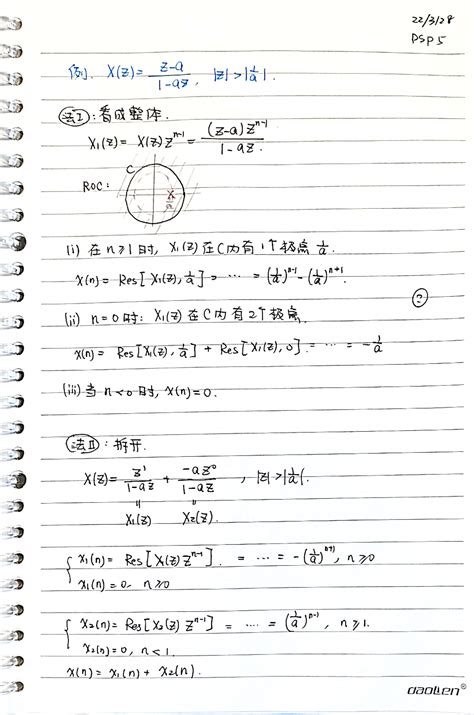 22/3/28
DSP5
例. X(z)= (z-a)/(1-az), |z|>|1/a|.
法I: 看成整体.
X₁(z)= X(z) zⁿ⁻¹ = (z-a)zⁿ⁻¹/(1-az).
ROC: C × 1/a
(i) 在 n≥1时, X₁(z)在C内有1个极点 1/a.
x(n)= Res[X₁(z), 1/a] = ... = (1/a)ⁿ⁻¹-(1/a)ⁿ⁺¹.
?
(ii) n=0时: X₁(z)在C内有2个极点.
x(n)= Res[X₁(z), 1/a] + Res[X₁(z), 0] = ... = -1/a
(iii) 当 n<0时, x(n)=0.
法II: 拆开.
X(z)= z¹/(1-az) + -az⁰/(1-az), |z|>|1/a|.
= =
X₁(z) X₂(z).
{ x₁(n)= Res[X₁(z) zⁿ⁻¹]. = ... = -(1/a)ⁿ⁺¹, n≥0
x₁(n)=0, n≥0
{ x₂(n)= Res[X₂(z) zⁿ⁻¹] = .... = (1/a)ⁿ⁻¹, n≥1.
x₂(n)=0, n<1.
x(n)= x₁(n)+ x₂(n).
daolen®